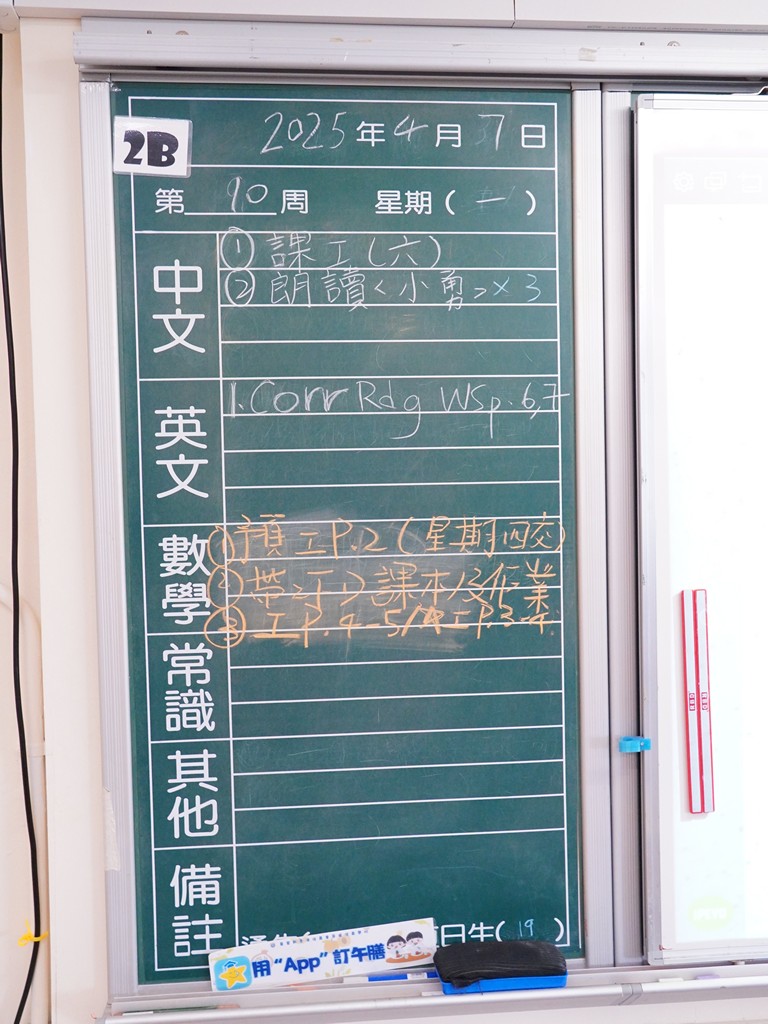 2B
2025年4月7日
第 90 周 星期(一)
中文
① 課工(六)
② 朗讀<小勇>×3
英文
1. Corr Rdg WS p. 6,7
數學
① 預工P.2(星期四交)
② 帶2下)課本及作業
③ 工P.4-5/ 工P.3-4.
常識
其他
備註
日生(19)
用“App”訂午膳